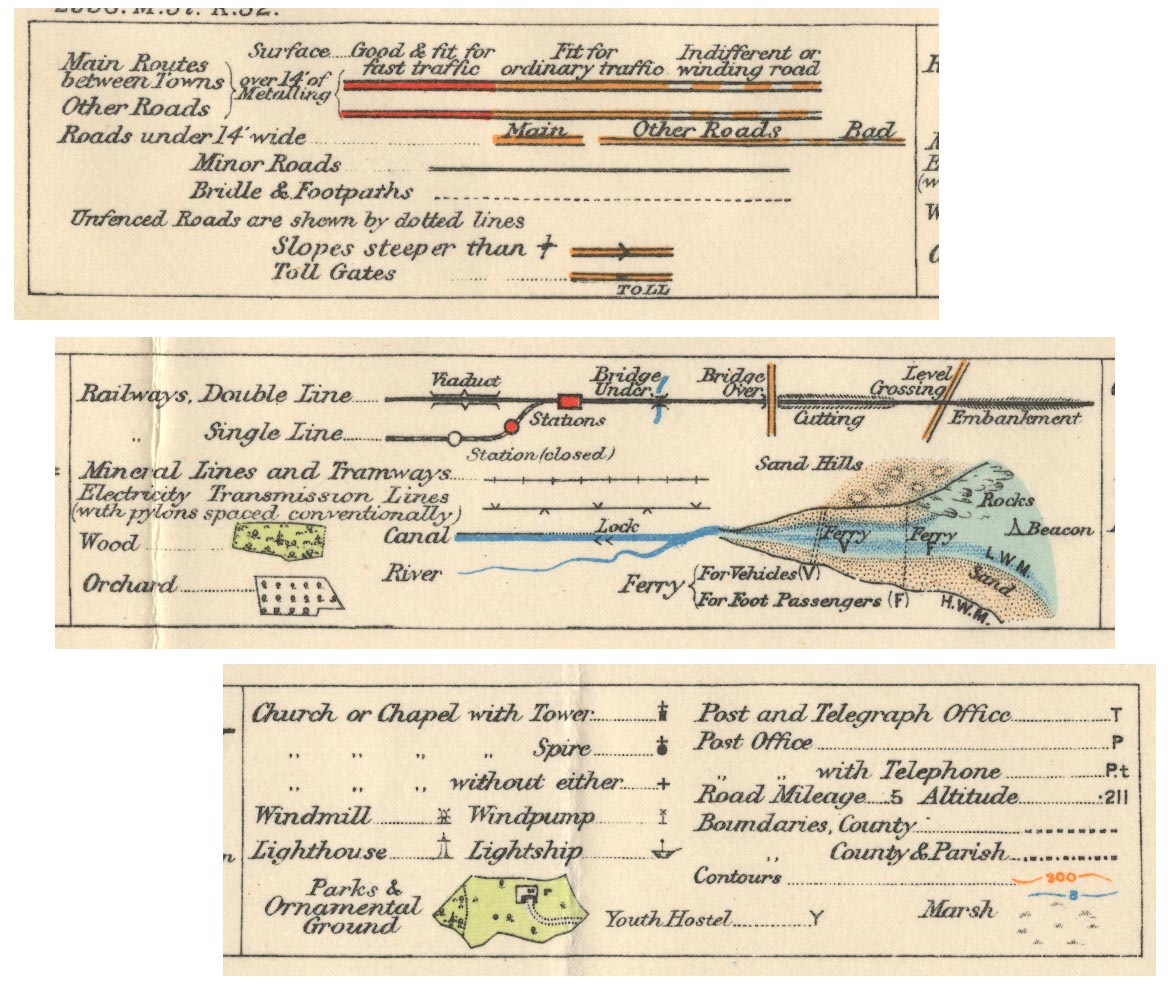 Surface Good & fit for fast traffic
Fit for ordinary traffic
Indifferent or winding road
Main Routes between Towns
over 14' of Metalling
Other Roads
Roads under 14' wide
Main
Other Roads
Bad
Minor Roads
Bridle & Footpaths
Unfenced Roads are shewn by dotted lines
Slopes steeper than
Toll Gates
TOLL
Railways, Double Line
Viaduct
Bridge Under
Bridge Over
Level Crossing
Stations
Cutting
Embankment
„ Single Line
Station (closed)
Mineral Lines and Tramways
Sand Hills
Electricity Transmission Lines
(with pylons spaced conventionally)
Rocks
Beacon
Wood
Canal
Lock
Ferry
V
Ferry
F
L.W.M.
Sand
Orchard
River
Ferry
For Vehicles (V)
For Foot Passengers (F)
H.W.M.
Church or Chapel with Tower
„ „ „ „ Spire
„ „ „ without either
Windmill
Windpump
Lighthouse
Lightship
Parks & Ornamental Ground
Youth Hostel Y
Post and Telegraph Office T
Post Office P
„ „ with Telephone P.t
Road Mileage 5 Altitude ·211
Boundaries, County
„ County & Parish
Contours 300
8
Marsh